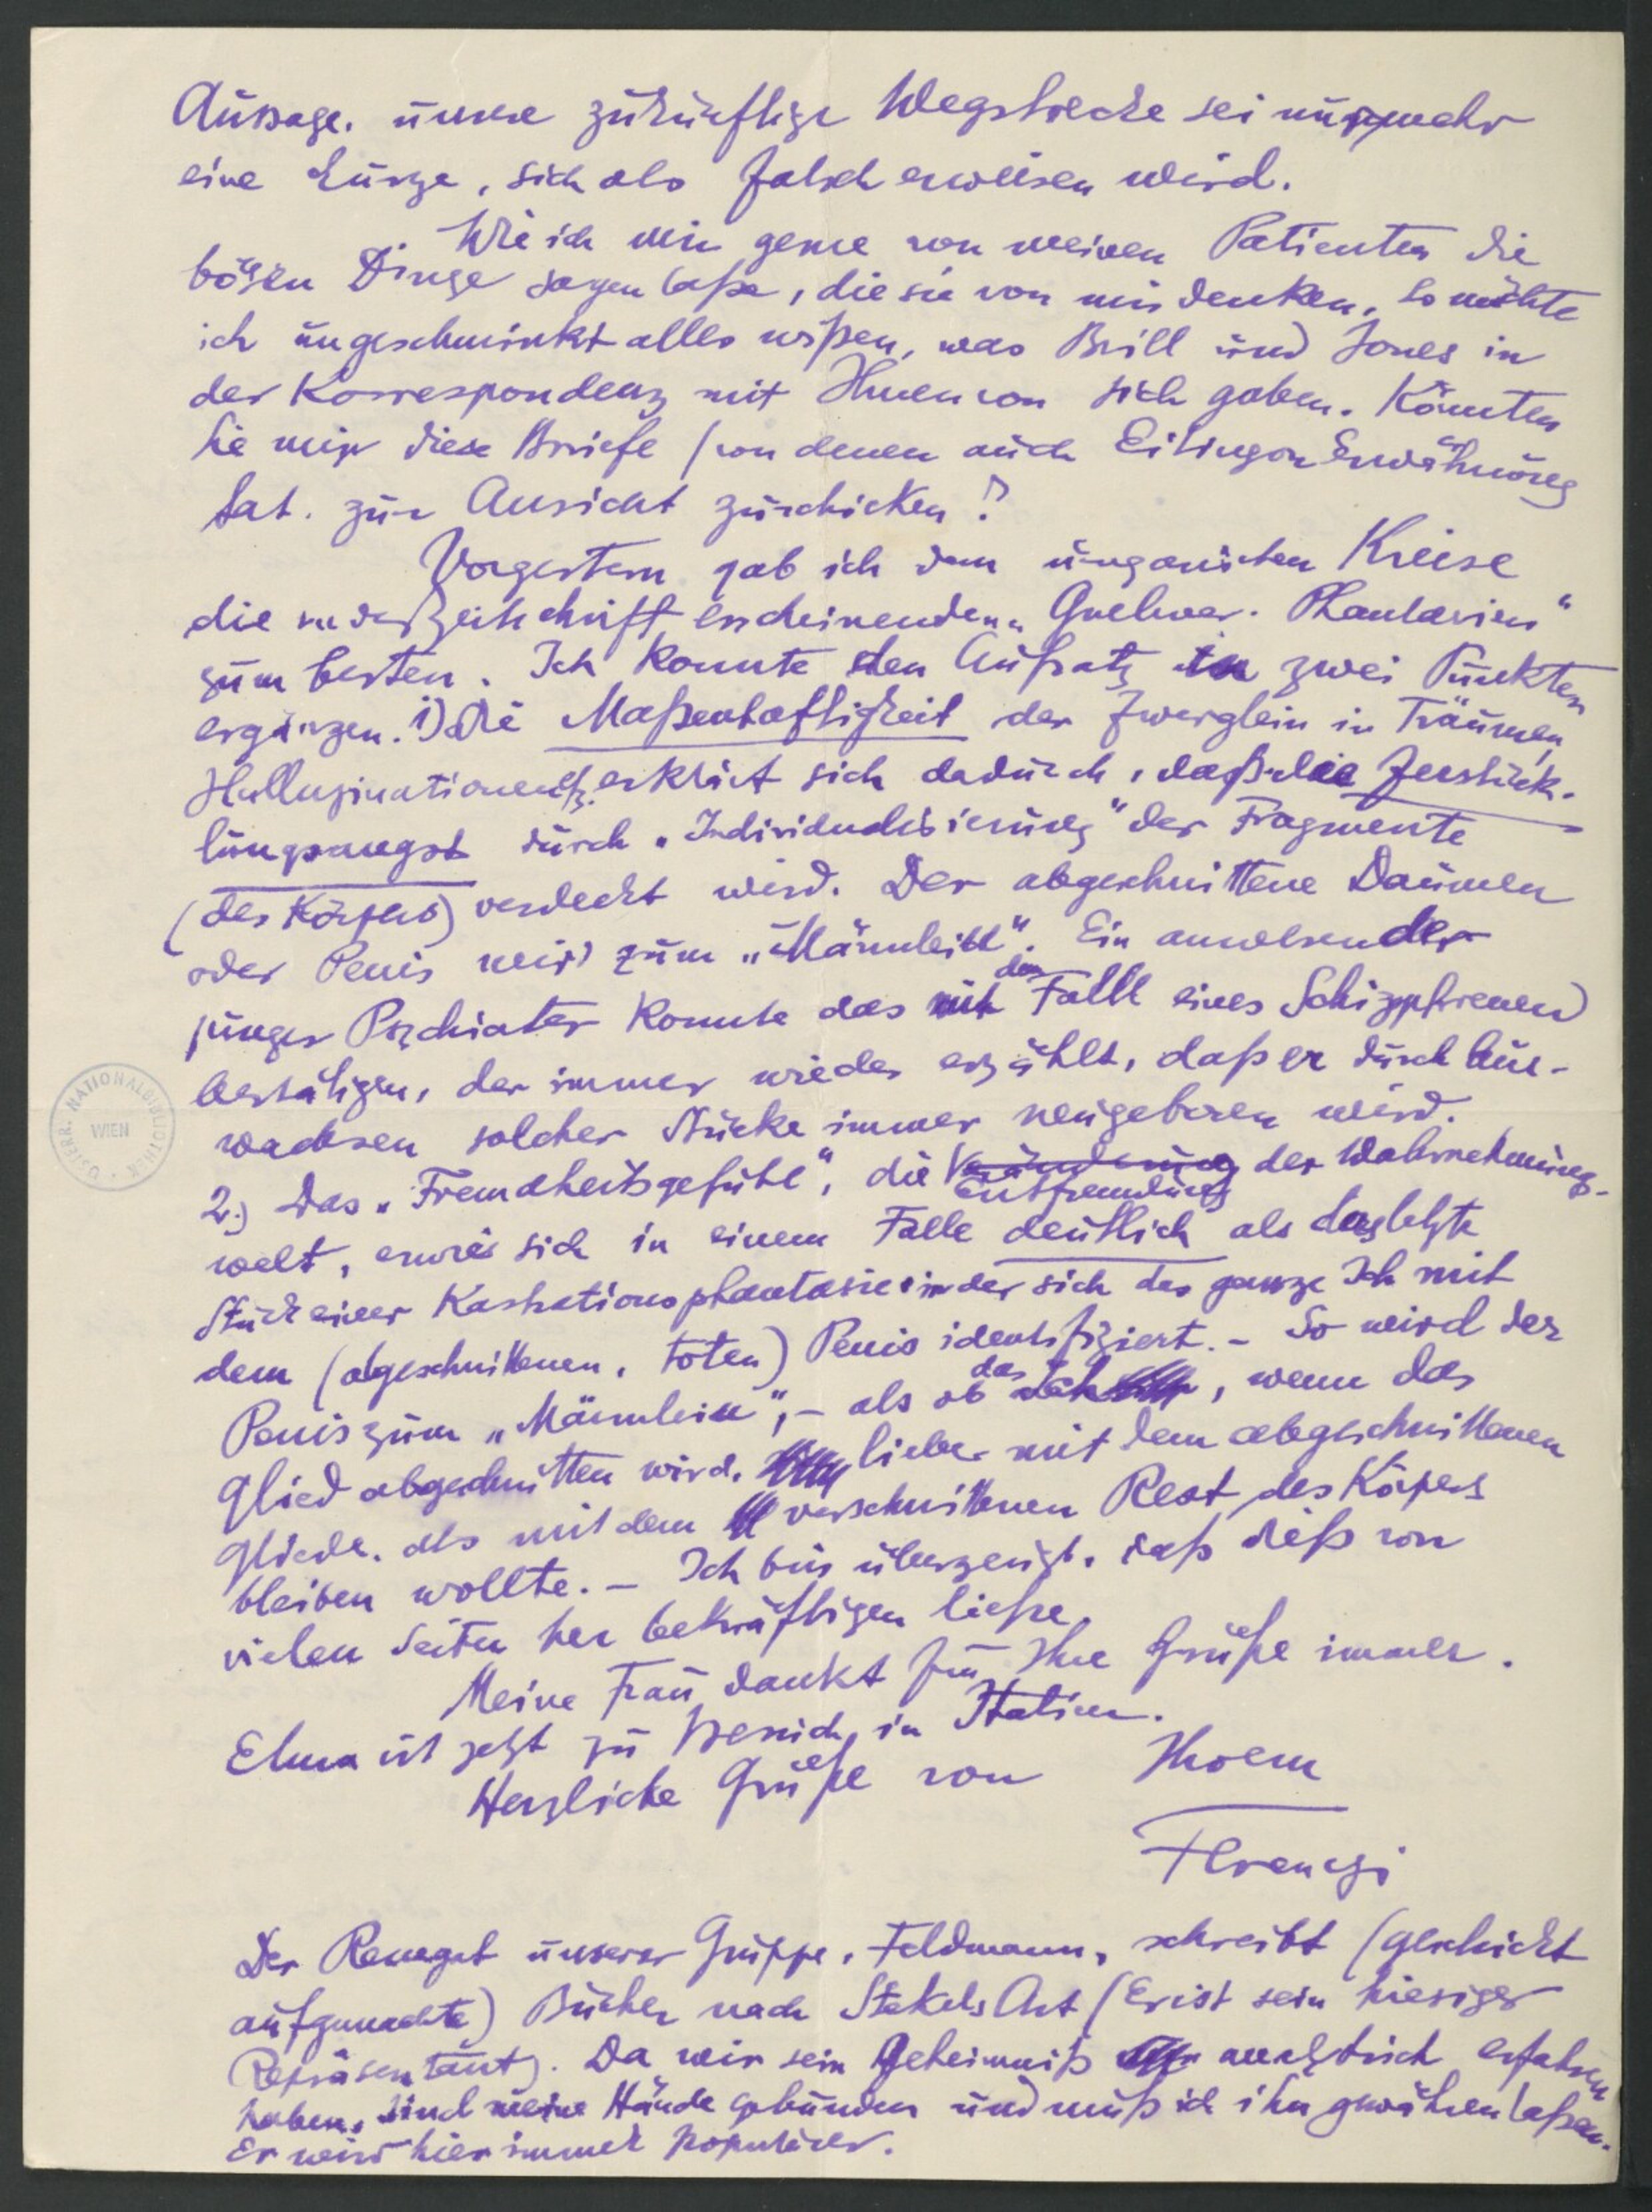 Aussage, unsere zukünftige Wegstrecke sei nunmehr
eine kurze, sich als falsch erweisen wird.
Wie ich mir gerne von meinen Patienten die
bösen Dinge sagen laße, die sie von mir denken, so möchte
ich ungeschminkt alles wißen, was Brill und Jones in
der Korrespondenz mit Ihnen von sich gaben. Könnten
Sie mir diese Briefe (von denen auch Eitingon Erwähnung
tat, zur Ansicht zuschicken?
Vorgestern gab ich dem ungarischen Kreise
die in der Zeitschrift erscheinenden „Guliver-Phantasien“
zum besten. Ich konnte den Aufsatz in zwei Punkten
ergänzen. 1) Die Maßenhaftigkeit der Zwerglein in Träumen,
Halluzinationen etz. erklärt sich dadurch, daß die Zerstück-
lungsangst durch „Individualisierung“ der Fragmente
(des Körpers) verdeckt wird. Der abgeschnittene Daumen
oder Penis wird zum „Männlein“. Ein anwesender
junger Psychiater konnte das mit dem Fall eines Schizophrenen
bestätigen, der immer wieder erzählt, daß er durch Aus-
wachsen solcher Stücke immer neugeboren wird.
2.) Das „Fremdheitsgefühl“, die Veränderung Entfremdung der Wahrnehmungs-
welt, erwies sich in einem Falle deutlich als das letzte
Stück einer Kastrationsphantasie in der sich das ganze Ich mit
dem (abgeschnittenen, toten) Penis identifiziert. – So wird der
Penis zum „Männlein“, – als ob das Ich, wenn das
Glied abgeschnitten wird, lieber mit dem abgeschnittenen
Gliede, als mit dem verschnittenen Rest des Körpers
bleiben wollte. – Ich bin überzeugt, daß dieß von
vielen Seiten her bekräftigen ließe.
Meine Frau dankt für Ihre Grüße immer.
Elma ist jetzt zu Besuch in Italien.
Herzliche Grüße von Ihrem
Ferenczi
Der Renegat unserer Gruppe, Feldmann, schreibt (geschickt
aufgemachte) Bücher nach Stekels Art (Er ist sein hiesiger
Repräsentant). Da wir sein Geheimniß analytisch erfahren
haben, sind meine Hände gebunden und muß ich ihn gewähren laßen.
Er wird hier immer populärer.
ÖSTERR. NATIONALBIBLIOTHEK
WIEN